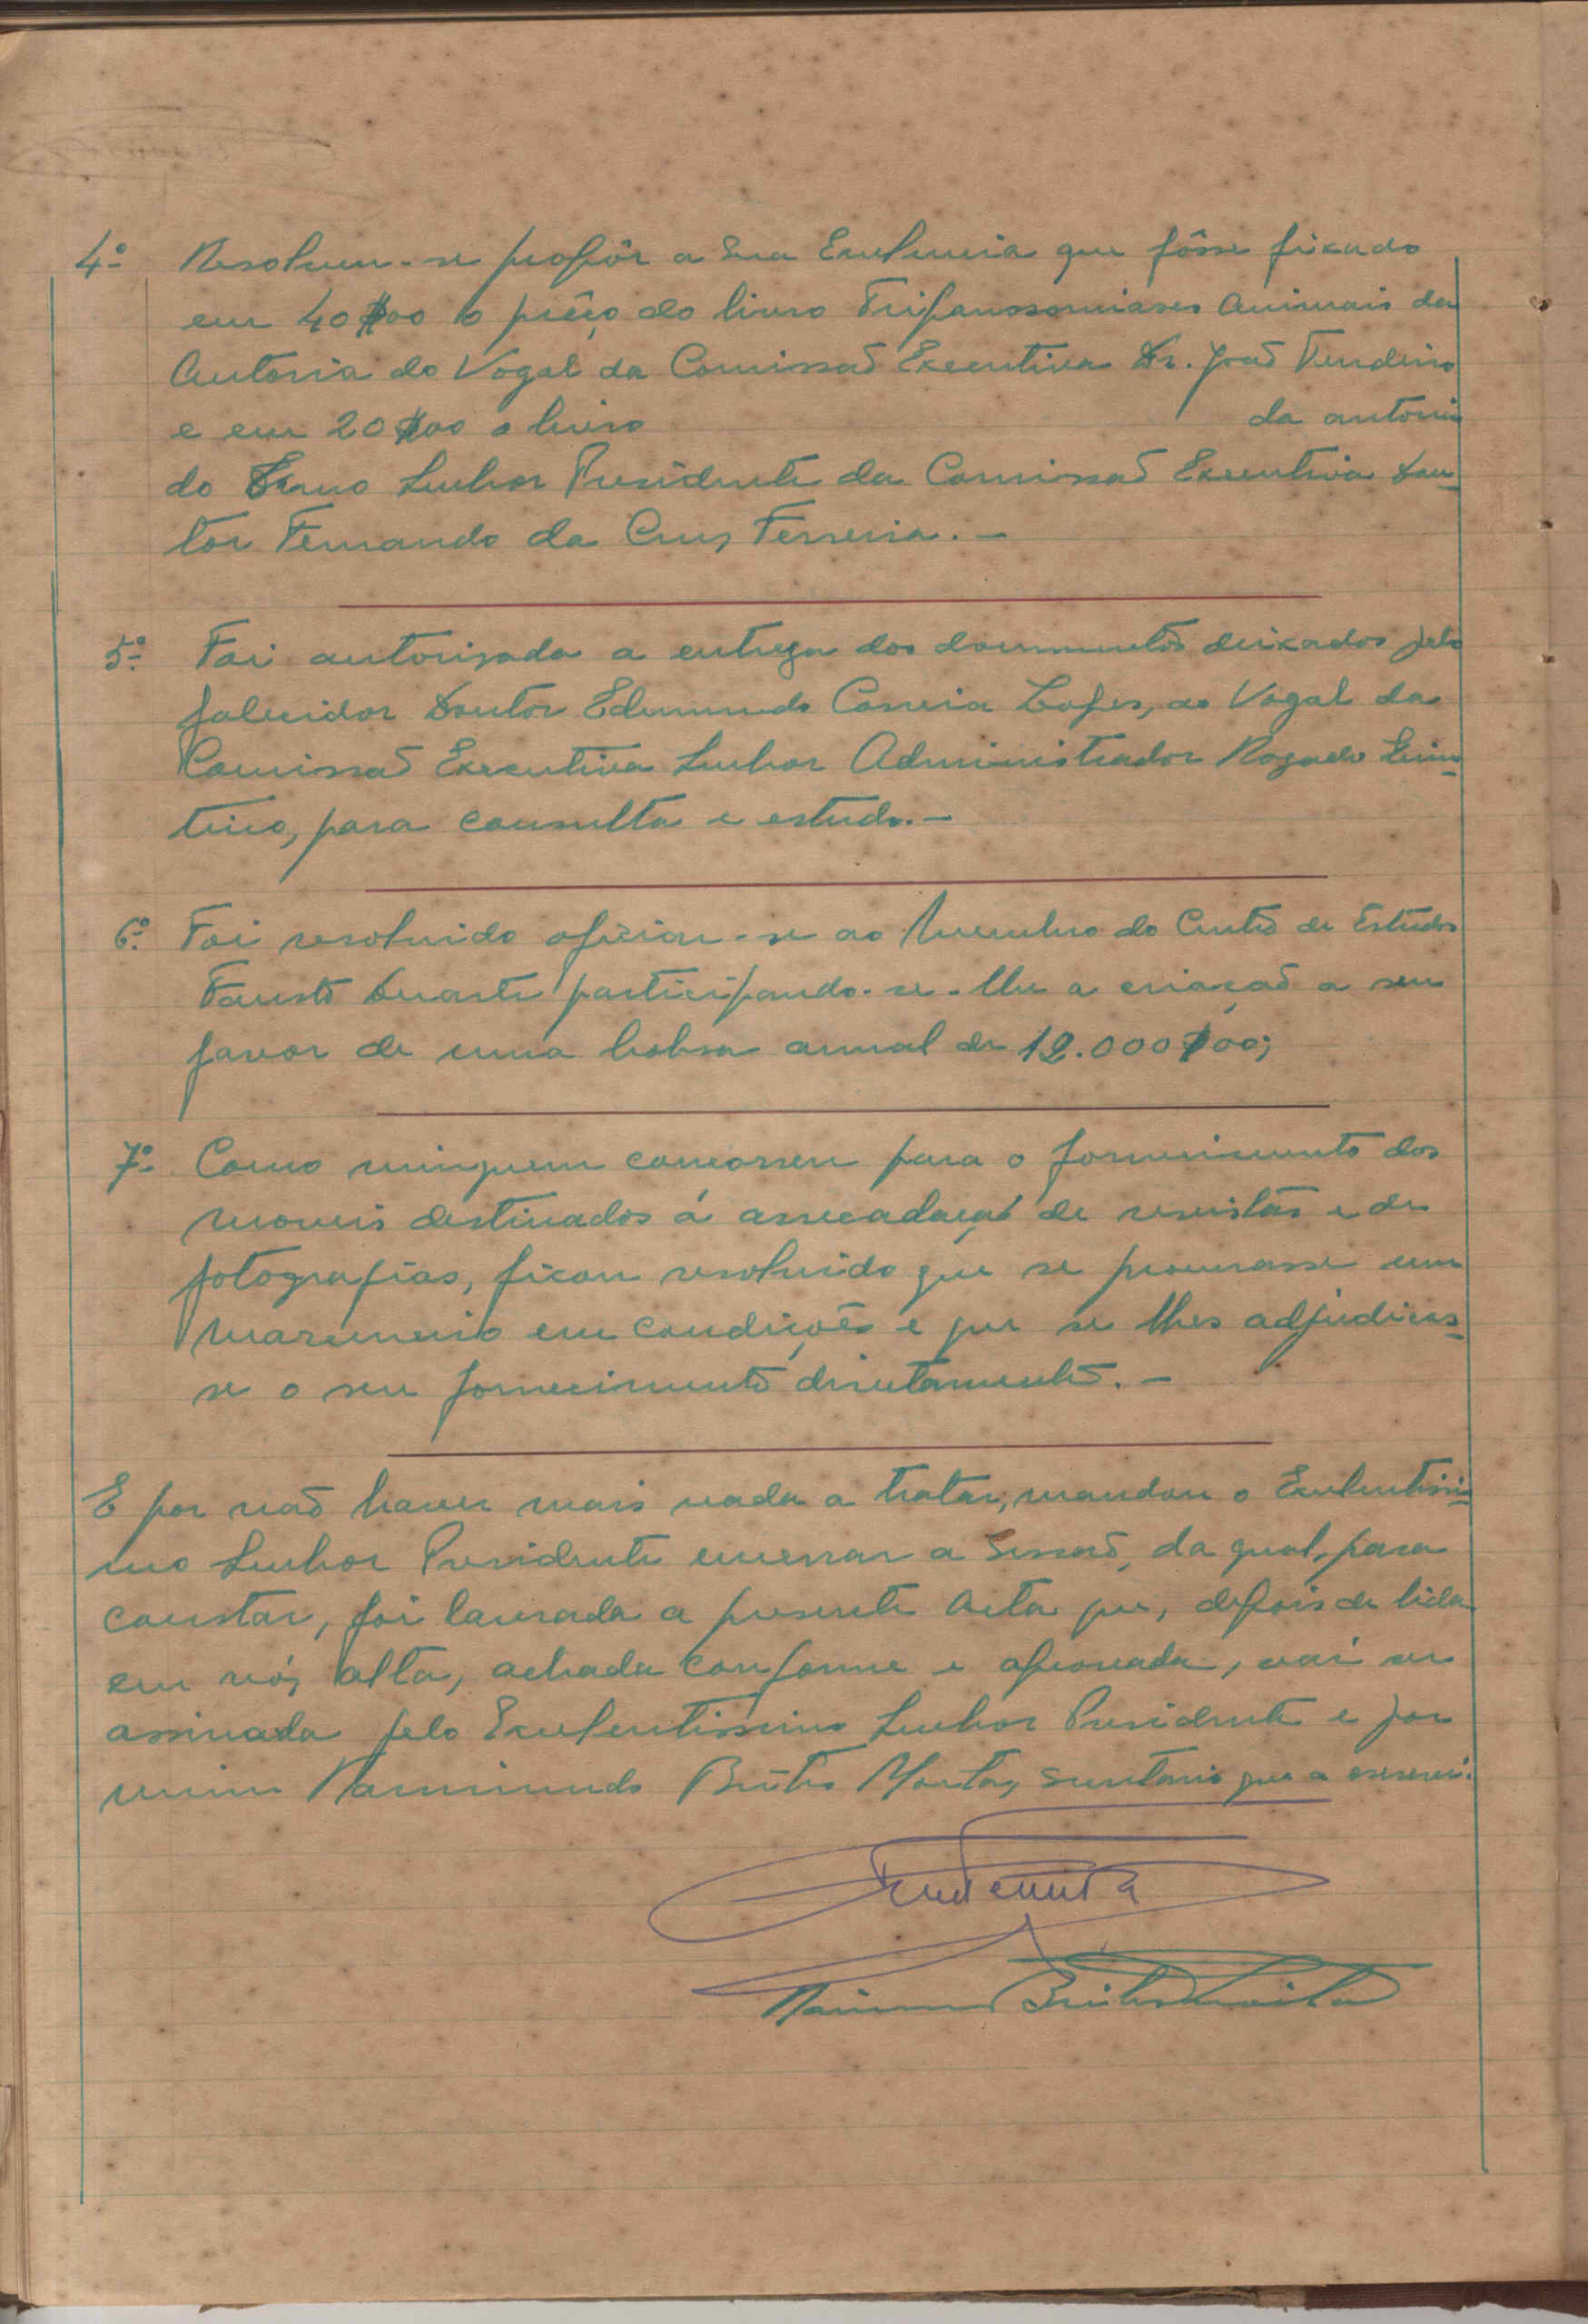 4º Resolveu-se propôr a Sua Excelencia que fôsse fixado
em 40$00 o prêço do livro Tripanossomiases Animais da
Autoria do Vogal da Comissaõ Executiva Dr. Joaõ Tendeiro
e em 20$00 o livro da autoria
do Exmo Senhor Presidente da Comissaõ Executiva Dou-
tor Fernando da Cruz Ferreira. -
5º. Foi autorizada a entrega dos documentos deixados pelo
falecidor Doutor Edmundo Correia Lopes, ao Vogal da
Comissaõ Executiva Senhor Administrador Rogado Quin-
tino, para consulta e estudo. -
6º. Foi resolvido oficiar-se ao Membro do Centro de Estudos
Fausto Duarte participando-se-lhe a criaçaõ a seu
favor de uma bolsa anual de 12.000$00;
7º. Como ninguem concorreu para o fornecimento dos
moveis destinados á arrecadaçaõ de revistas e de
fotografias, ficou resolvido que se procurasse um
marceneiro em condições e que se lhes adjudicas-
se o seu fornecimento diretamente. -
E por naõ haver mais nada a tratar, mandou o Excelentissi-
mo Senhor Presidente encerrar a Sessaõ, da qual, para
constar, foi lavrada a presente Acta que, depois de lida
em vóz alta, achada conforme e aprovada, vai ser
assinada pelo Excelentissimo Senhor Presidente e por
mim Raimundo Brito Moita, Secretario que a escrevi.